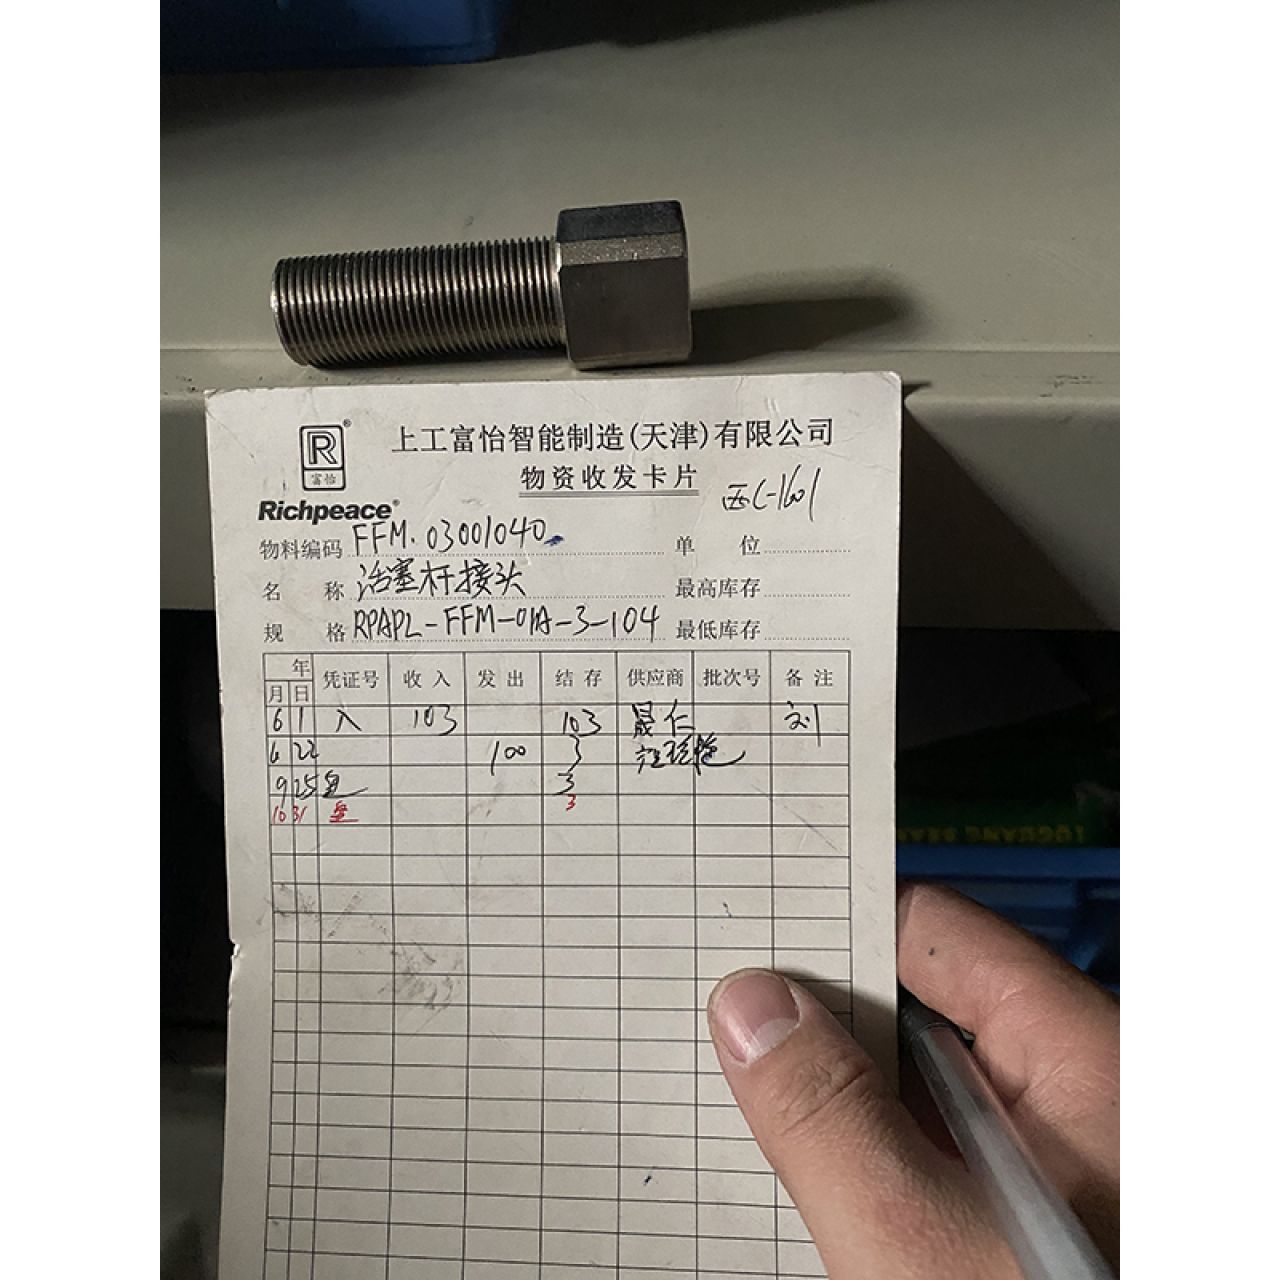 R®
富怡
Richpeace®
上工富怡智能制造(天津)有限公司
物资收发卡片
西C-1601
物料编码 FFM.03001040 单位
名称 活塞杆接头 最高库存
规格 RPAPL-FFM-01A-3-104 最低库存
年
月 日 凭证号 收入 发出 结存 供应商 批次号 备注
6 1 入 103 103 晟仁 刘
6 22 100 3
9 25 盘 3
10 31 盘 3